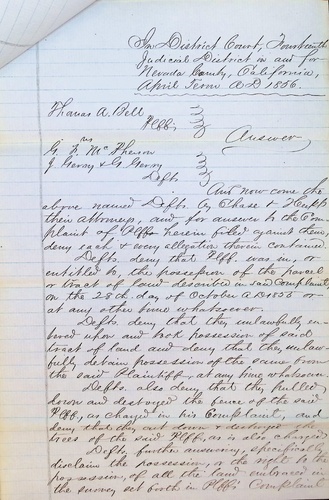 In District Court, Fourteenth
Judicial District in and for
Nevada County, California,
April Term A.D 1856
Thomas A. Bell
Plff
vs
Answer
G. F. McPherson
J Gerry & G Gerry
Defts
And now come the
above named Defts by Chase &
their attorneys, and for answer to the Com
plaint of Plff herein filed against them,
deny each & every allegation therein contained.
Defts. deny that Plff. was in, or
entitled to, the possession of the parcel
or tract of land described in said Complaint
on the 28th day of October A.D 1855 or
at any other time whatsoever.
Defts. deny that they unlawfully en
tered upon and took possession of said
tract of land and deny that the unlaw
fully detain possession of the same from
the said Plaintiff, at any time whatsoever.
Defts. also deny that they pulled
down and destroyed the fence of the said
Plff, as charged in his Complaint, and
deny that they cut down & destroyed the
trees of the said Plff, as is also charged
Defts. further answering, specifically
disclaim the possession, or the right of
possession, of all the land embraced in
the survey set forth in Plff's Complaint